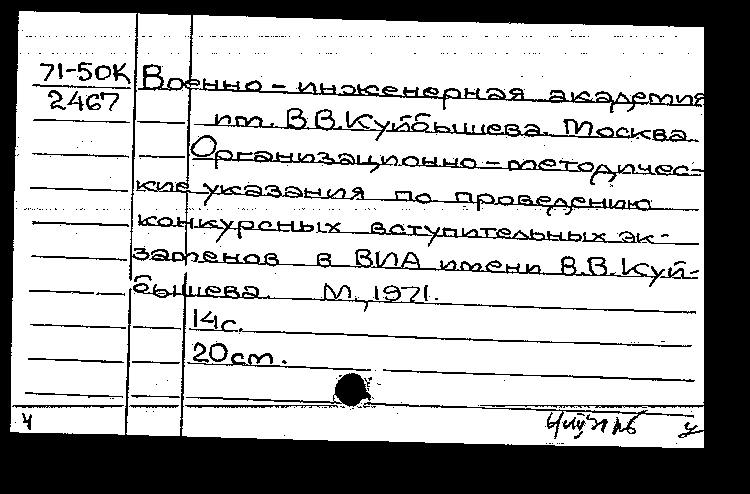 71-50К Военно-инженерная академия
2467 им. В.В.Куйбышева. Москва.
Организационно-методичес-
кие указания по проведению
конкурсных вступительных эк-
заменов в ВИА имени В.В.Куй-
бышева. М., 1971.
14с.
20см.
ч
у